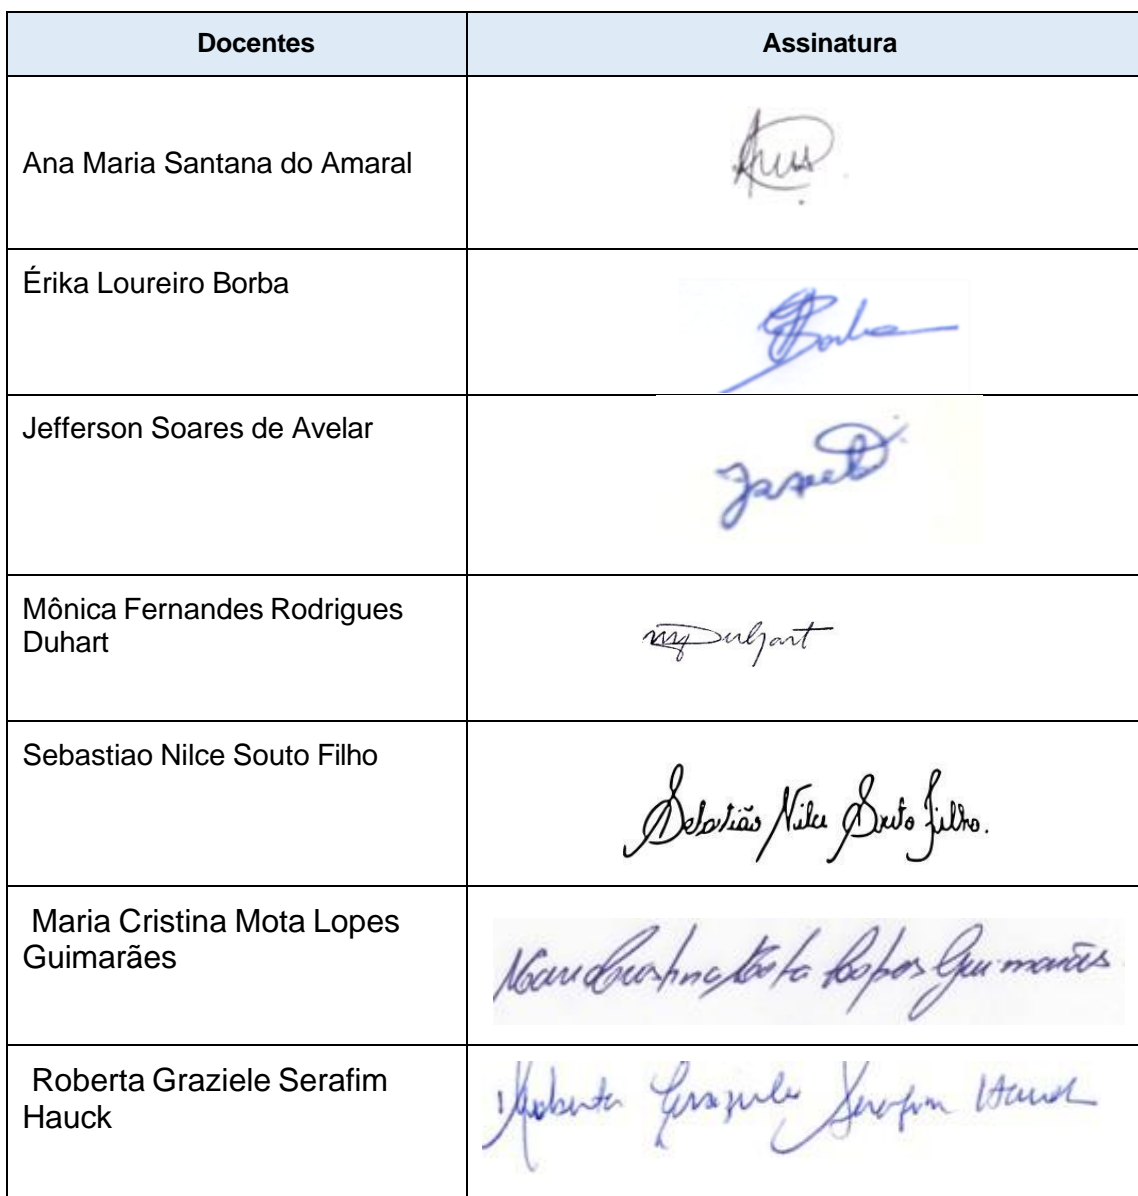 Docentes Assinatura
Ana Maria Santana do Amaral
Érika Loureiro Borba
Borba
Jefferson Soares de Avelar
Mônica Fernandes Rodrigues
Duhart
Duhart
Sebastiao Nilce Souto Filho
Sebastião Nilce Souto Filho.
Maria Cristina Mota Lopes
Guimarães
Maria Cristina Mota Lopes Guimarães
Roberta Graziele Serafim
Hauck
Roberta Graziele Serafim Hauck